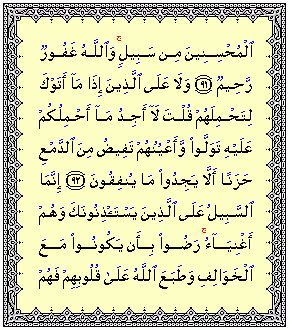 ٱلْمُحْسِنِينَ مِن سَبِيلٍۚ وَٱللَّهُ غَفُورٌ
رَّحِيمٌ ﴿٩١﴾ وَلَا عَلَى ٱلَّذِينَ إِذَا مَآ أَتَوْكَ
لِتَحْمِلَهُمْ قُلْتَ لَآ أَجِدُ مَآ أَحْمِلُكُمْ
عَلَيْهِ تَوَلَّوا۟ وَّأَعْيُنُهُمْ تَفِيضُ مِنَ ٱلدَّمْعِ
حَزَنًا أَلَّا يَجِدُوا۟ مَا يُنفِقُونَ ﴿٩٢﴾ إِنَّمَا
ٱلسَّبِيلُ عَلَى ٱلَّذِينَ يَسْتَـْٔذِنُونَكَ وَهُمْ
أَغْنِيَآءُۚ رَضُوا۟ بِأَن يَكُونُوا۟ مَعَ
ٱلْخَوَالِفِ وَطَبَعَ ٱللَّهُ عَلَىٰ قُلُوبِهِمْ فَهُمْ